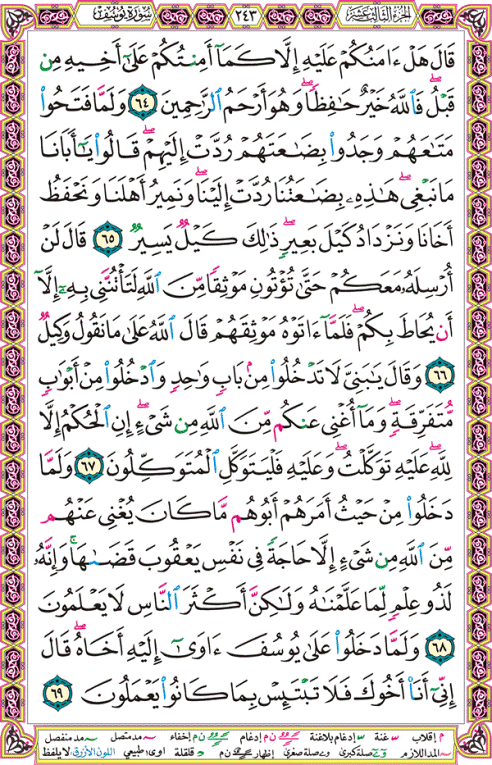 الجزء الثالث عشر ٢٤٣ سورة يوسف
قَالَ هَلْ ءَامَنُكُمْ عَلَيْهِ إِلَّا كَمَآ أَمِنتُكُمْ عَلَىٰٓ أَخِيهِ مِن
قَبْلُ فَٱللَّهُ خَيْرٌ حَـٰفِظًا وَهُوَ أَرْحَمُ ٱلرَّٰحِمِينَ ٦٤ وَلَمَّا فَتَحُوا۟
مَتَـٰعَهُمْ وَجَدُوا۟ بِضَـٰعَتَهُمْ رُدَّتْ إِلَيْهِمْ قَالُوا۟ يَـٰٓأَبَانَا
مَا نَبْغِى هَـٰذِهِۦ بِضَـٰعَتُنَا رُدَّتْ إِلَيْنَا وَنَمِيرُ أَهْلَنَا وَنَحْفَظُ
أَخَانَا وَنَزْدَادُ كَيْلَ بَعِيرٍ ذَٰلِكَ كَيْلٌ يَسِيرٌ ٦٥ قَالَ لَنْ
أُرْسِلَهُۥ مَعَكُمْ حَتَّىٰ تُؤْتُونِ مَوْثِقًا مِّنَ ٱللَّهِ لَتَأْتُنَّنِى بِهِۦٓ إِلَّآ
أَن يُحَاطَ بِكُمْ فَلَمَّآ ءَاتَوْهُ مَوْثِقَهُمْ قَالَ ٱللَّهُ عَلَىٰ مَا نَقُولُ وَكِيلٌ
٦٦ وَقَالَ يَـٰبَنِىَّ لَا تَدْخُلُوا۟ مِنۢ بَابٍ وَٰحِدٍ وَٱدْخُلُوا۟ مِنْ أَبْوَٰبٍ
مُّتَفَرِّقَةٍ وَمَآ أُغْنِى عَنكُم مِّنَ ٱللَّهِ مِن شَىْءٍ إِنِ ٱلْحُكْمُ إِلَّا
لِلَّهِ عَلَيْهِ تَوَكَّلْتُ وَعَلَيْهِ فَلْيَتَوَكَّلِ ٱلْمُتَوَكِّلُونَ ٦٧ وَلَمَّا
دَخَلُوا۟ مِنْ حَيْثُ أَمَرَهُمْ أَبُوهُم مَّا كَانَ يُغْنِى عَنْهُم
مِّنَ ٱللَّهِ مِن شَىْءٍ إِلَّا حَاجَةً فِى نَفْسِ يَعْقُوبَ قَضَىٰهَا وَإِنَّهُۥ
لَذُو عِلْمٍ لِّمَا عَلَّمْنَـٰهُ وَلَـٰكِنَّ أَكْثَرَ ٱلنَّاسِ لَا يَعْلَمُونَ
٦٨ وَلَمَّا دَخَلُوا۟ عَلَىٰ يُوسُفَ ءَاوَىٰٓ إِلَيْهِ أَخَاهُ قَالَ
إِنِّىٓ أَنَا۠ أَخُوكَ فَلَا تَبْتَئِسْ بِمَا كَانُوا۟ يَعْمَلُونَ ٦٩
م إقلاب غنة إدغام بلاغنة ن م إدغام ن م إخفاء مد متصل مد منفصل
المد اللازم صلة كبرى وصلة صغرى إظهار ن م قلقلة اوى: طبيعي اللون الأزرق: لا يلفظ